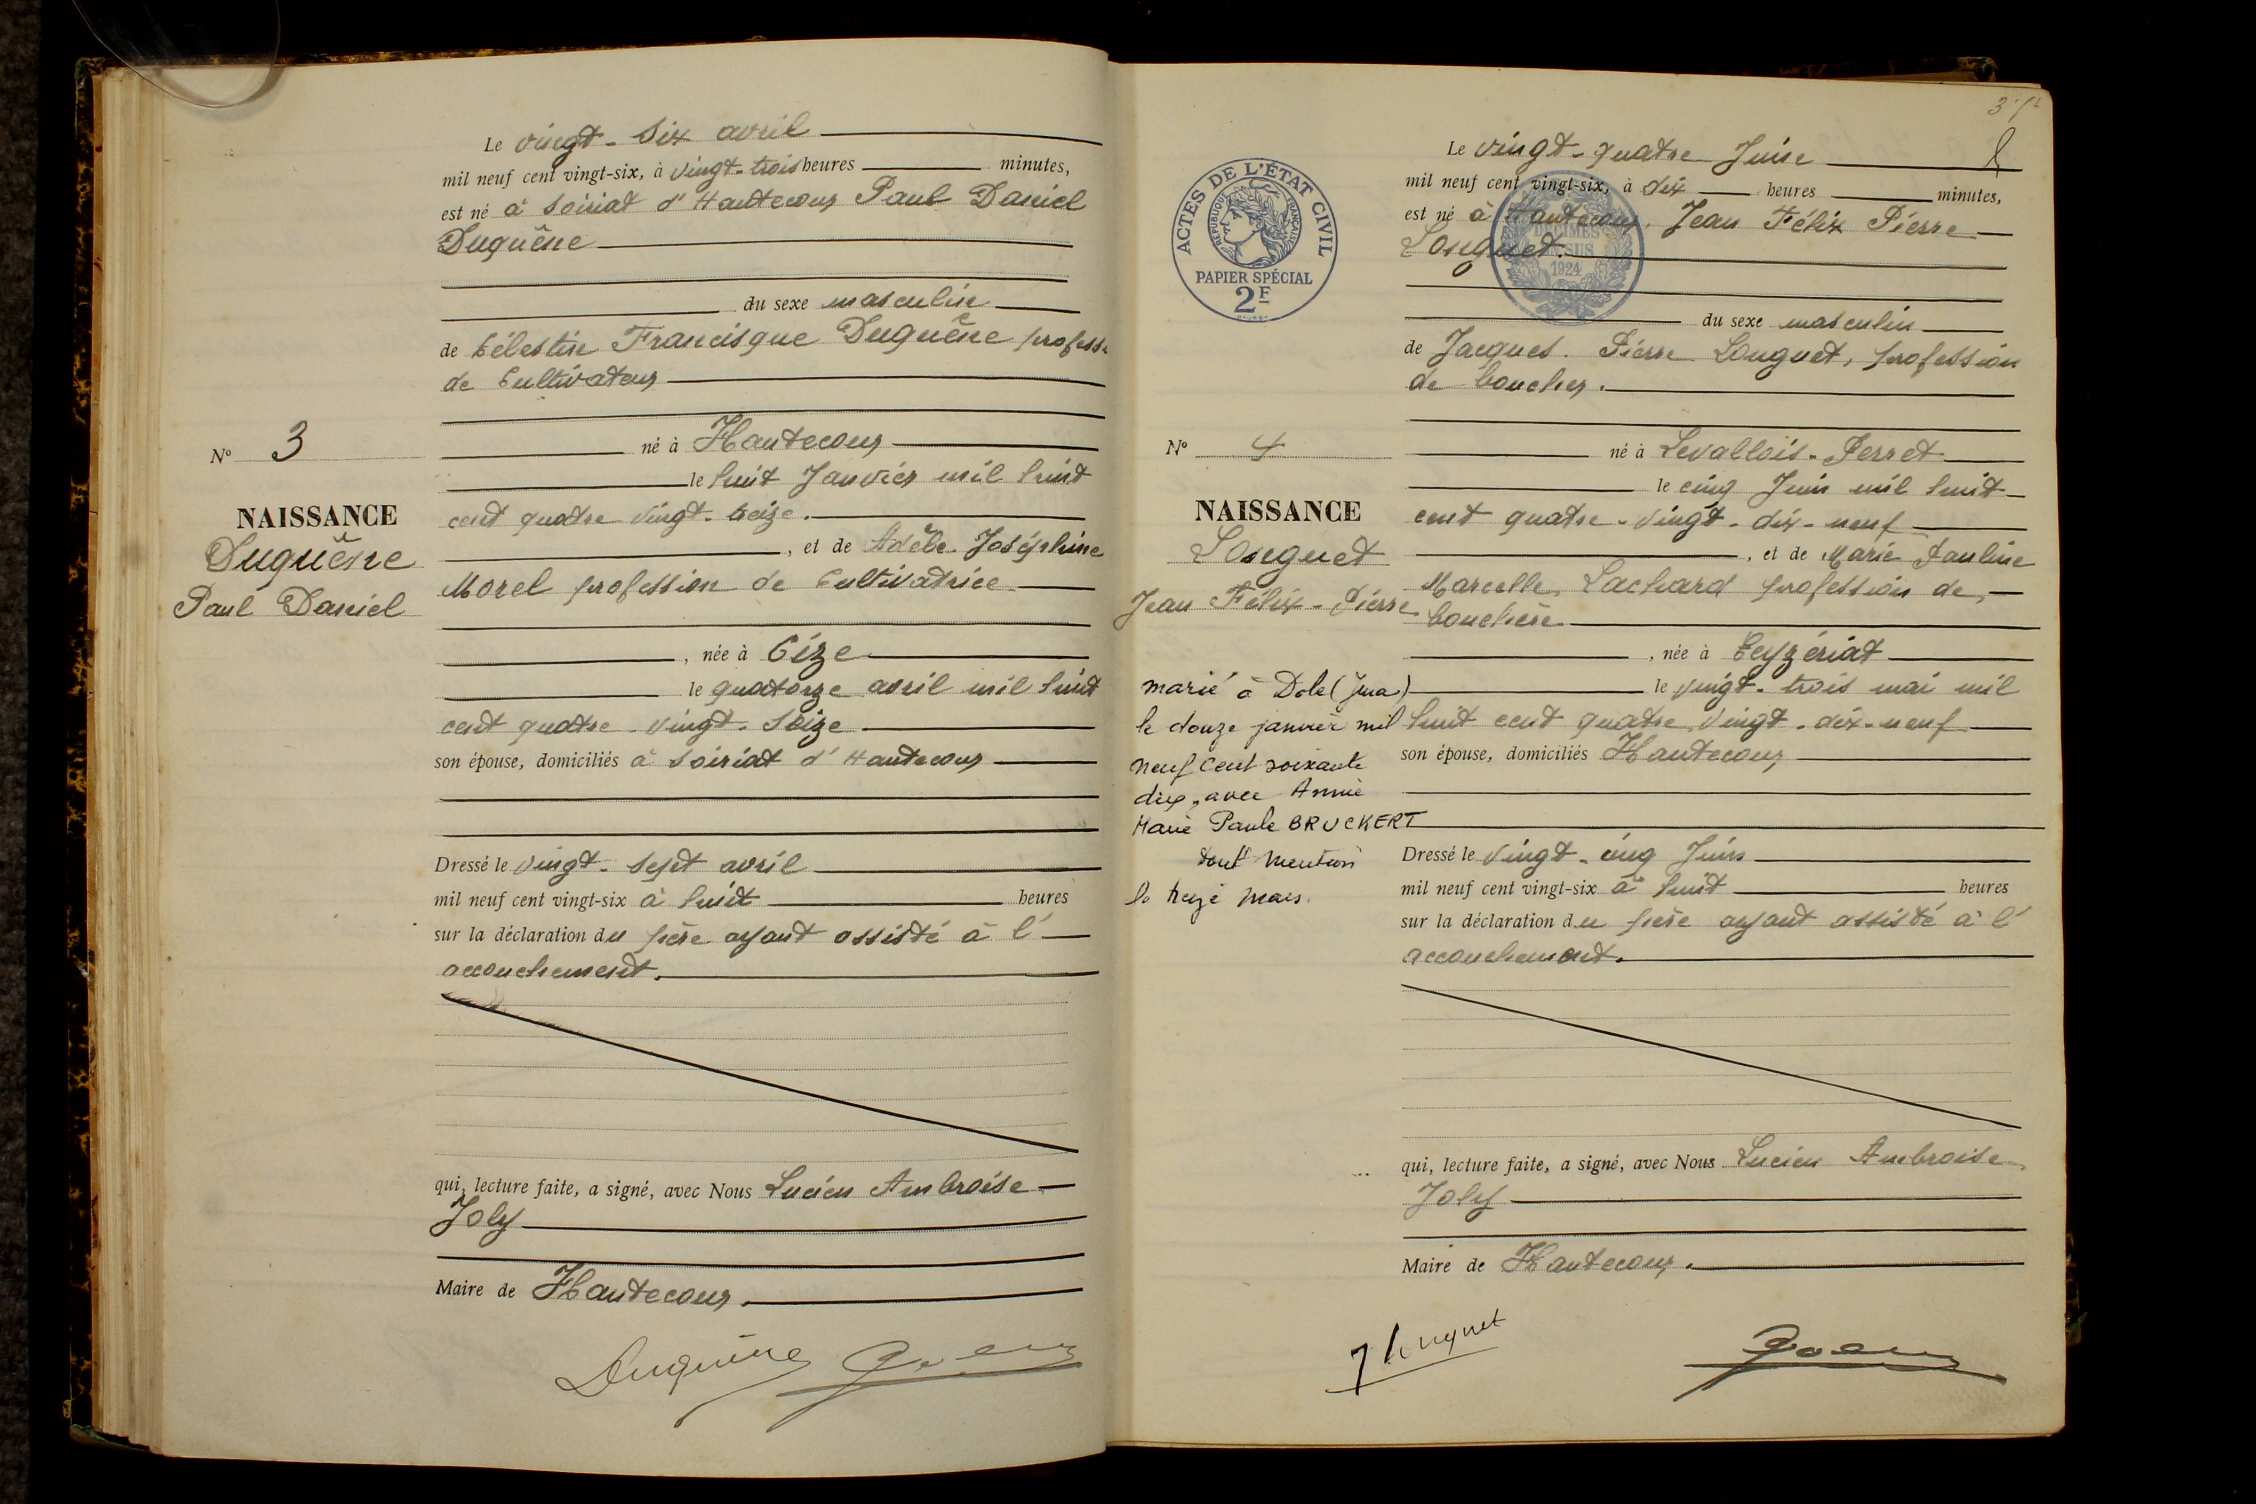 Le vingt-six avril
mil neuf cent vingt-six, à vingt-trois heures minutes,
est né à Soiriat d'Hautecour Paul Daniel
Duguêne
du sexe masculin
de Célestin Francisque Duguêne profess.
de Cultivateur
né à Hautecour
le huit Janvier mil huit
cent quatre vingt-treize.
, et de Adèle Joséphine
Morel profession de Cultivatrice
, née à Cize
le quatorze avril mil huit
cent quatre-vingt-seize
son épouse, domiciliés à Soiriat d'Hautecour
Dressé le vingt-sept avril
mil neuf cent vingt-six à huit heures
sur la déclaration du père ayant assisté à l'
accouchement.
qui, lecture faite, a signé, avec Nous Lucien Ambroise
Joly
Maire de Hautecour.
Duguêne
N° 3
NAISSANCE
Duguêne
Paul Daniel
ACTES DE L'ÉTAT CIVIL
RÉPUBLIQUE FRANÇAISE
PAPIER SPÉCIAL
2F
Le vingt-quatre Juin
mil neuf cent vingt-six, à dix heures minutes,
est né à Hautecour, Jean Félix Pierre
Longuet.
DÉCIMES
EN SUS
1924
du sexe masculin
de Jacques Pierre Longuet, profession
de boucher.
né à Levallois-Perret
le cinq Juin mil huit
cent quatre-vingt-dix-neuf
, et de Marie Pauline
Marcelle Lachard profession de
bouchère
, née à Ceyzériat
le vingt-trois mai mil
huit cent quatre vingt-dix-neuf
son épouse, domiciliés Hautecour
Dressé le vingt-cinq Juin
mil neuf cent vingt-six à huit heures
sur la déclaration du père ayant assisté à l'
accouchement.
qui, lecture faite, a signé, avec Nous Lucien Ambroise
Joly
Maire de Hautecour.
J Longuet
N° 4
NAISSANCE
Longuet
Jean Félix-Pierre
marié à Dole (Jura)
le douze janvier mil
neuf cent soixante
dix, avec Annie
Marie Paule BRUCKERT
dont mention
le treize mars.